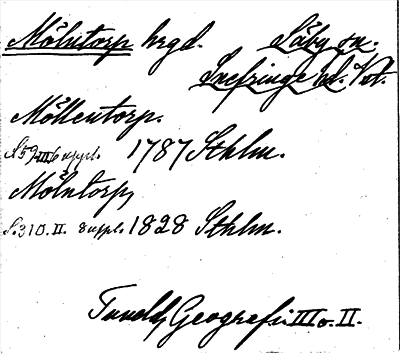 Mölntorp hrgd. Säby sn.
Snefringe hd. Vstm.
Möllentorp.
S. 59. III 6 uppl. 1787 Sthlm.
Mölntorp,
S. 310. II. 8 uppl. 1828 Sthlm.
Tunelds Geografi III o. II.